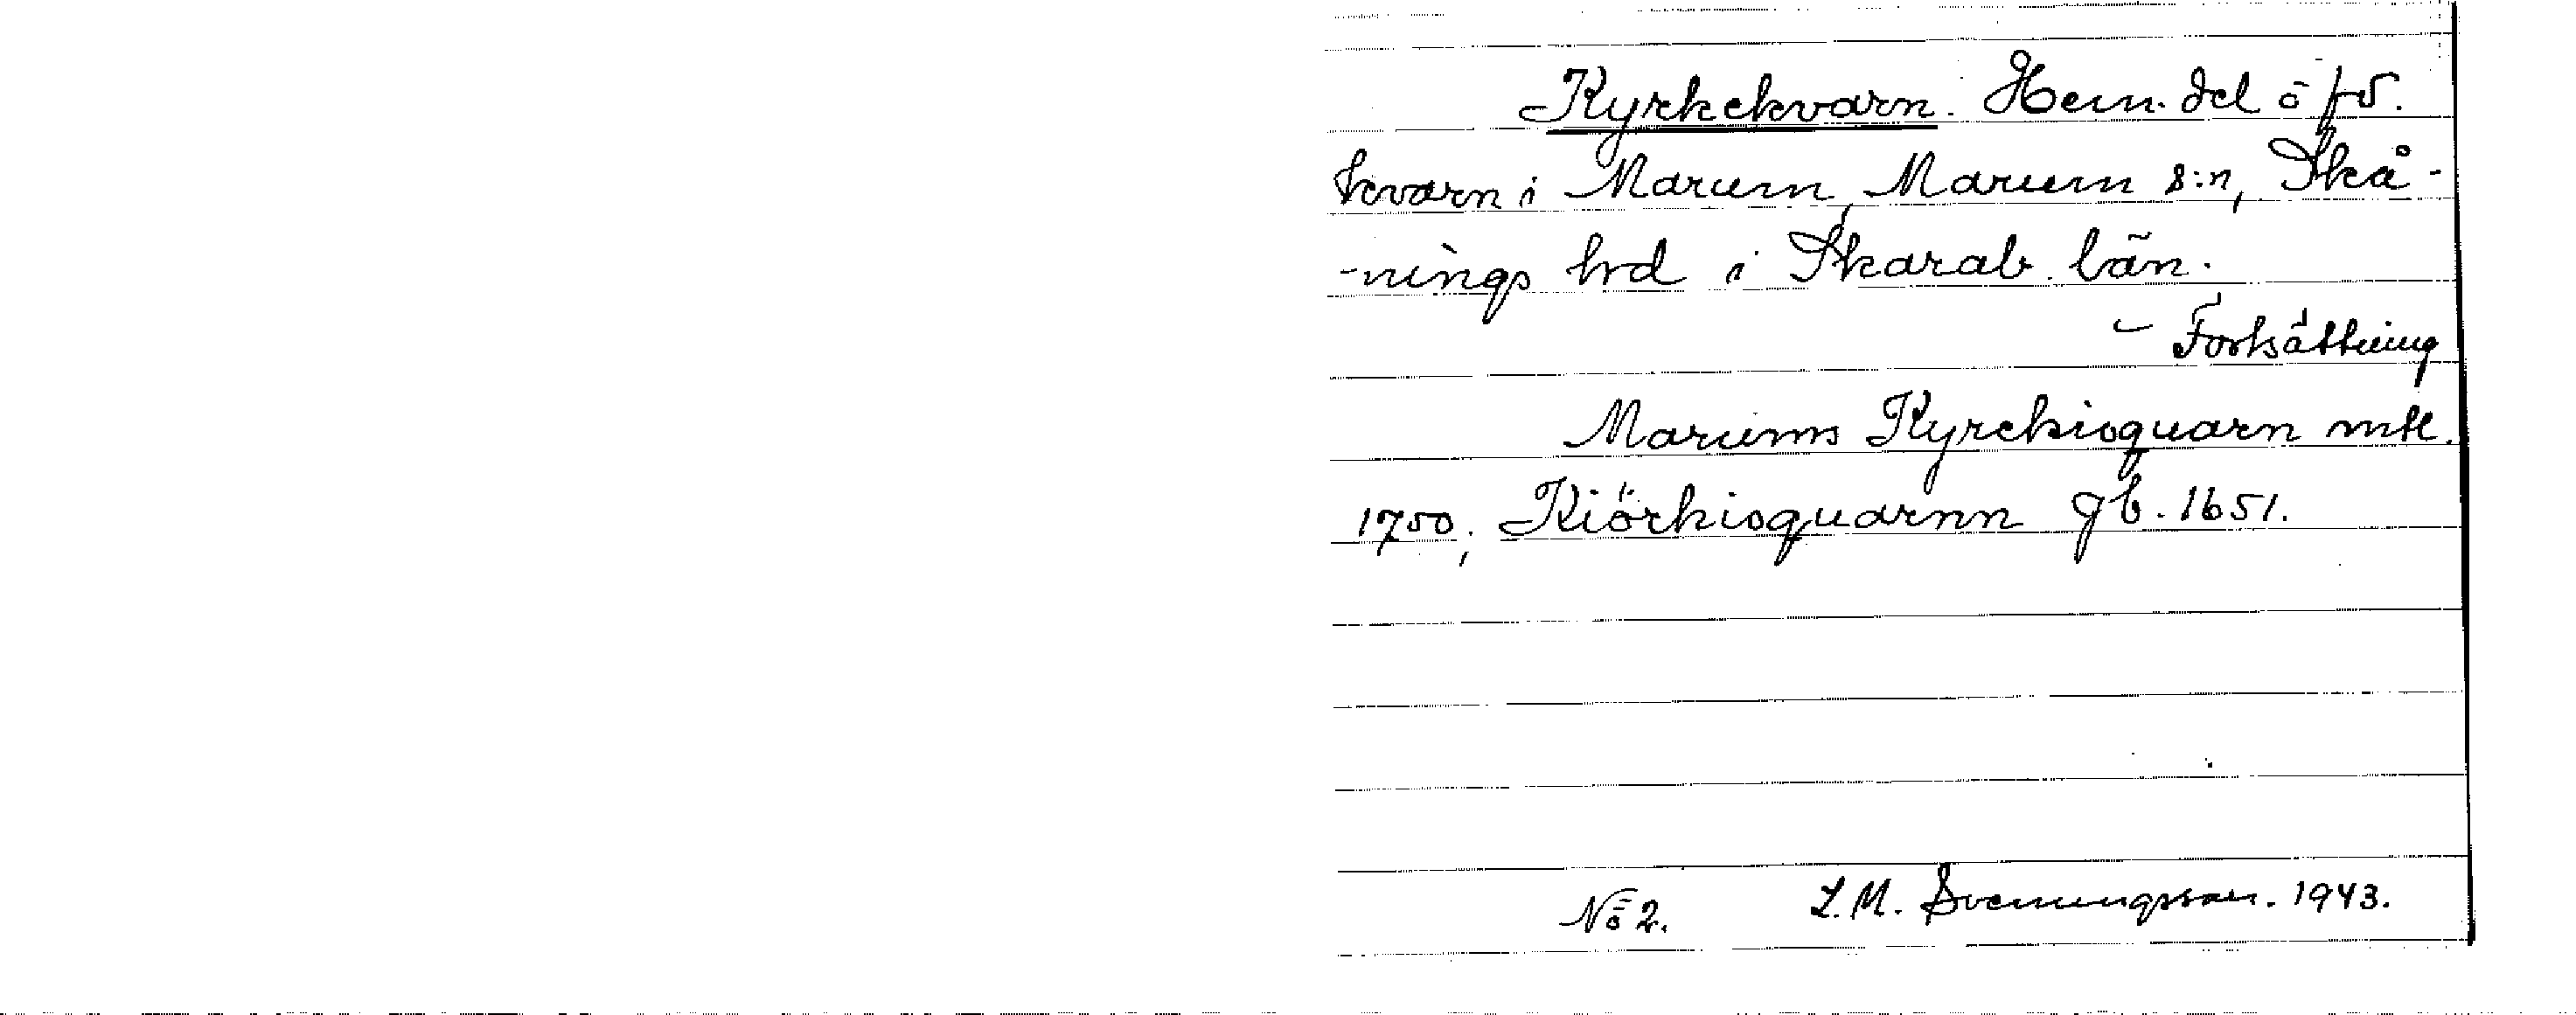 Kyrkekvarn. Hem. del o fd.
kvarn i Marum, Marum s:n, Skå-
-nings hrd i Skarab. län.
- Fortsättning
Marums Kyrckioquarn mtl.
1750; Kiörkioquarnn gb. 1651.
No 2. L.M. Svenungsson. 1943.